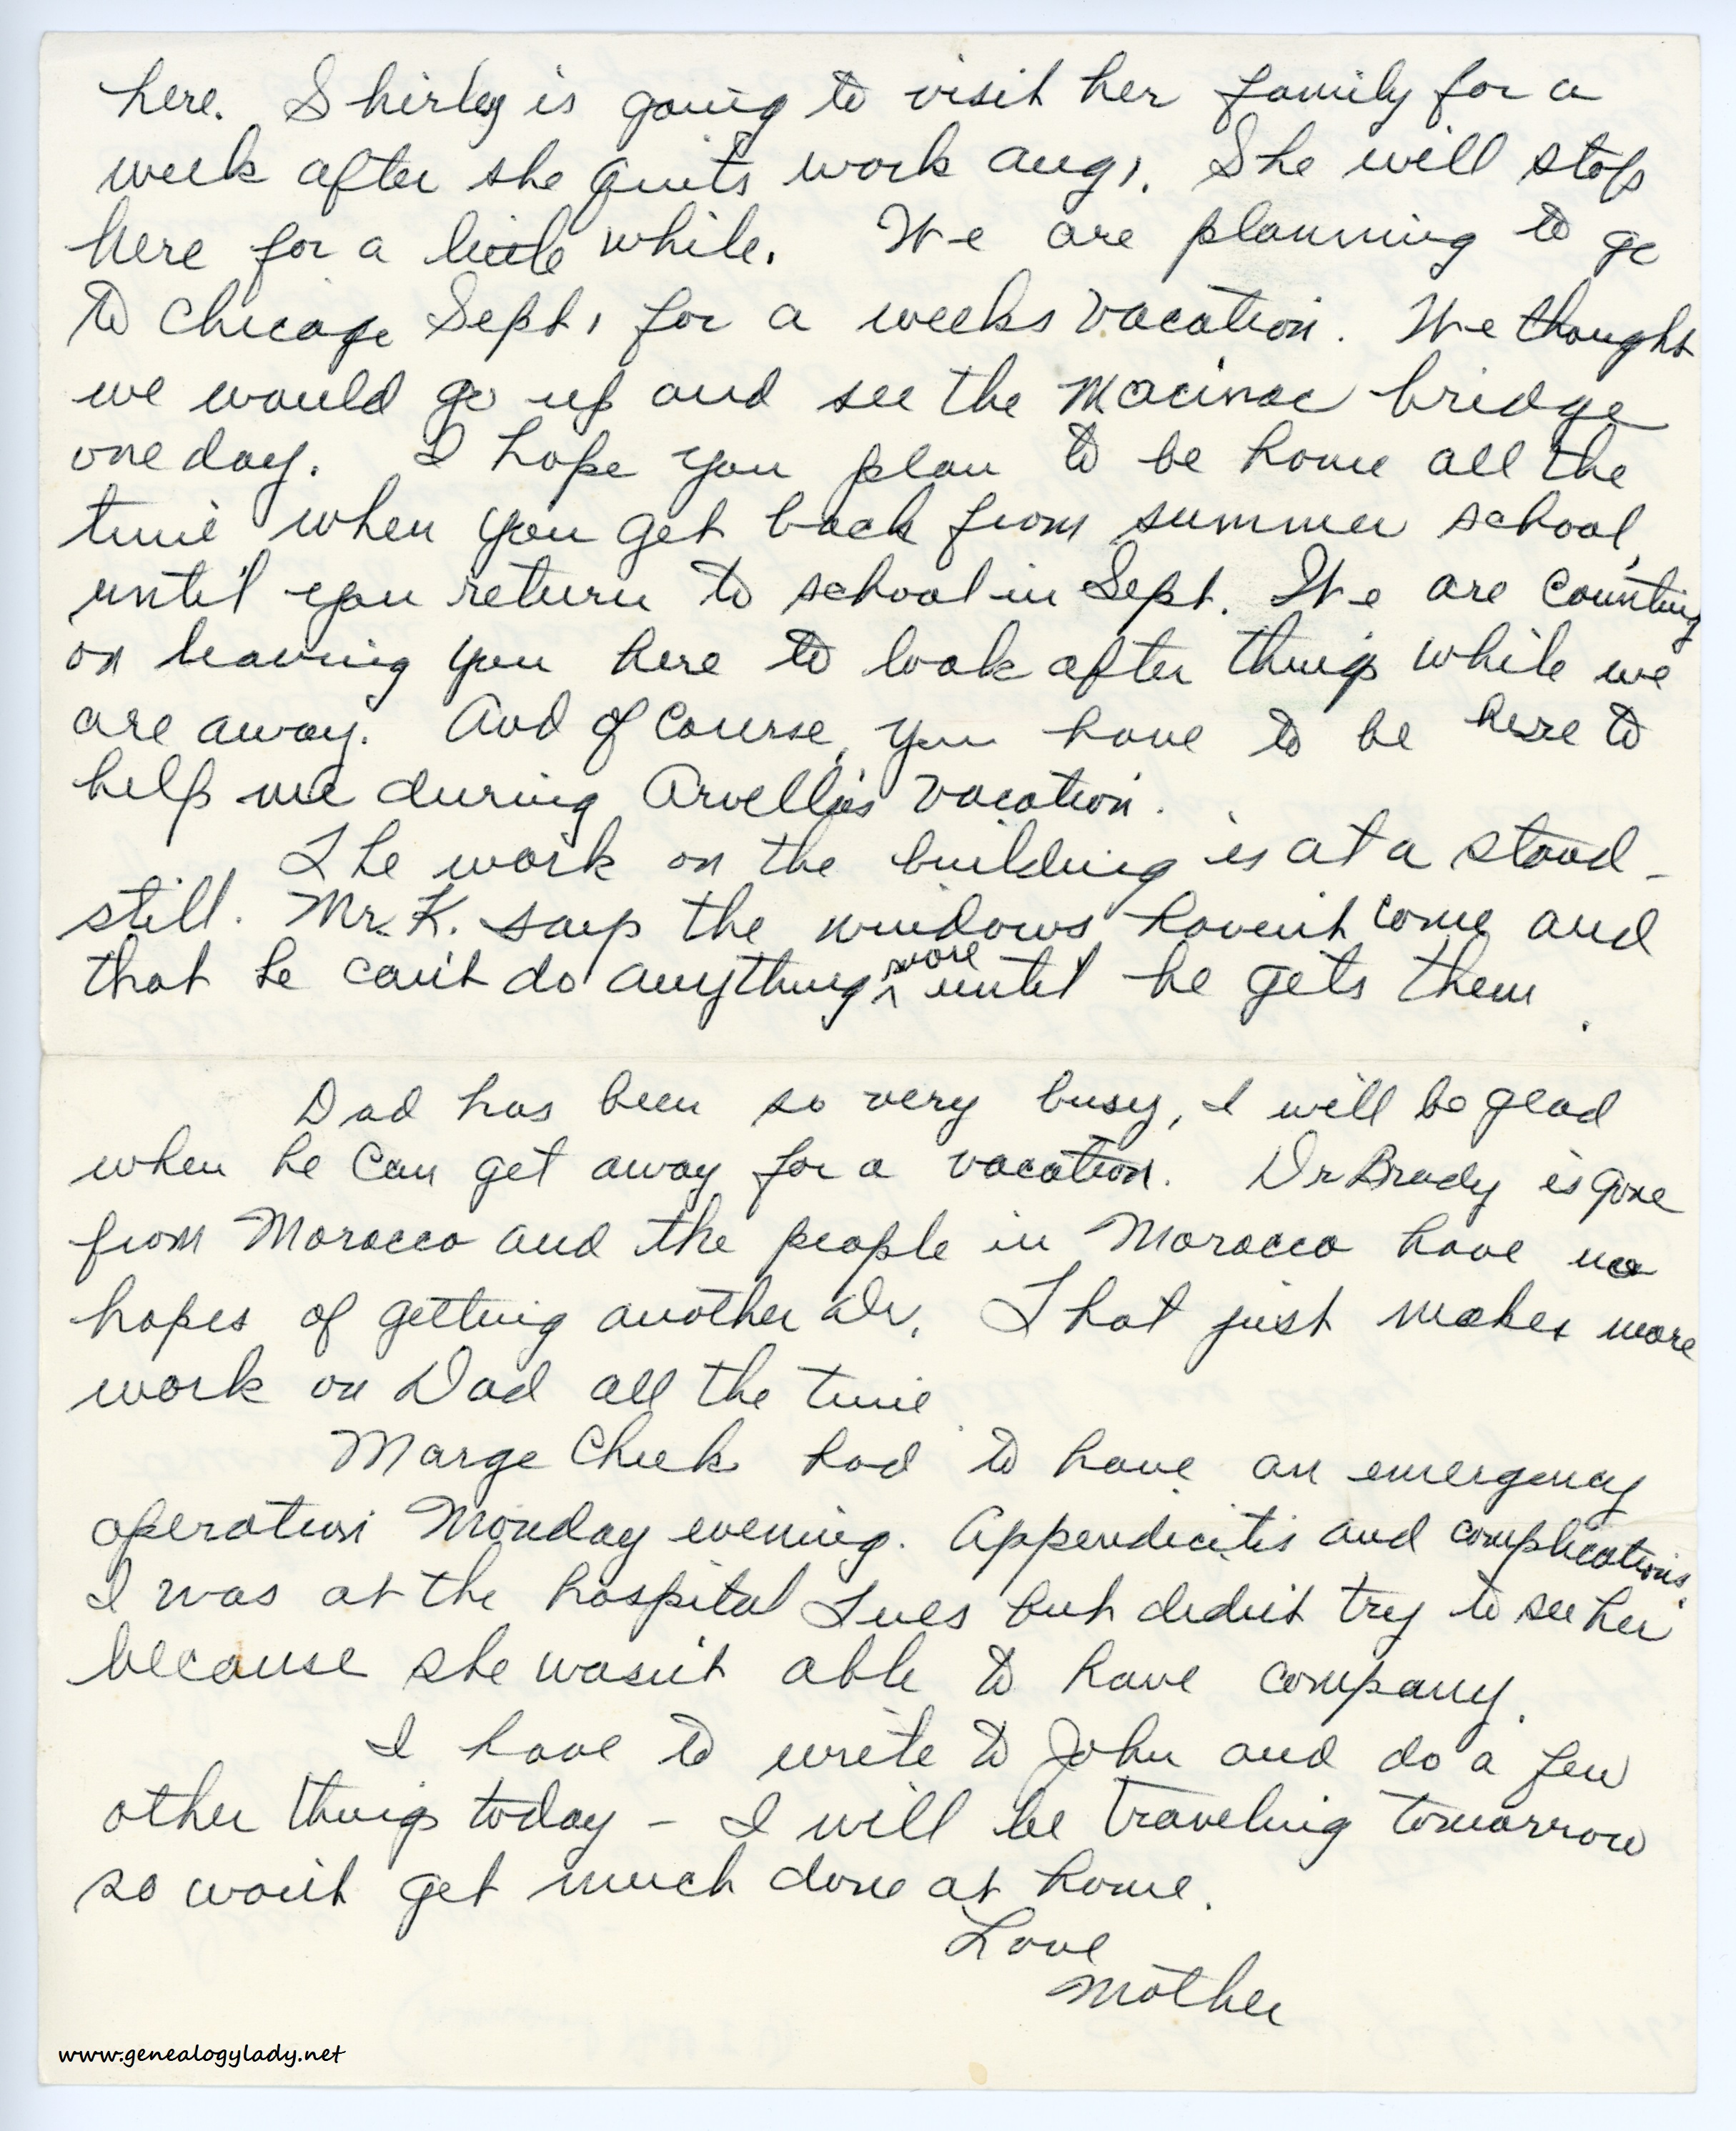 here. Shirley is going to visit her family for a
week after she quits work Aug 1. She will stop
here for a little while. We are planning to go
to Chicago Sept 1 for a weeks vacation. We thought
we would go up and see the Macinac bridge
one day. I hope you plan to be home all the
time when you get back from summer school,
until you return to school in Sept. We are counting
on leaving you here to look after things while we
are away. And of course, you have to be here to
help me during Arvella's vacation.
The work on the building is at a stand-
still. Mr. K. says the windows haven't come and
that he can't do anything more until he gets them.
Dad has been so very busy, I will be glad
when he can get away for a vacation. Dr Brady is gone
from Morocco and the people in Morocco have no
hopes of getting another Dr. That just makes more
work on Dad all the time
Marge Cheek had to have an emergency
operation Monday evening. Appendicitis and complications.
I was at the hospital Tues but didn't try to see her
because she wasn't able to have company.
I have to write to John and do a few
other things today - I will be traveling tomorrow
so won't get much done at home.
Love
Mother
www.genealogylady.net